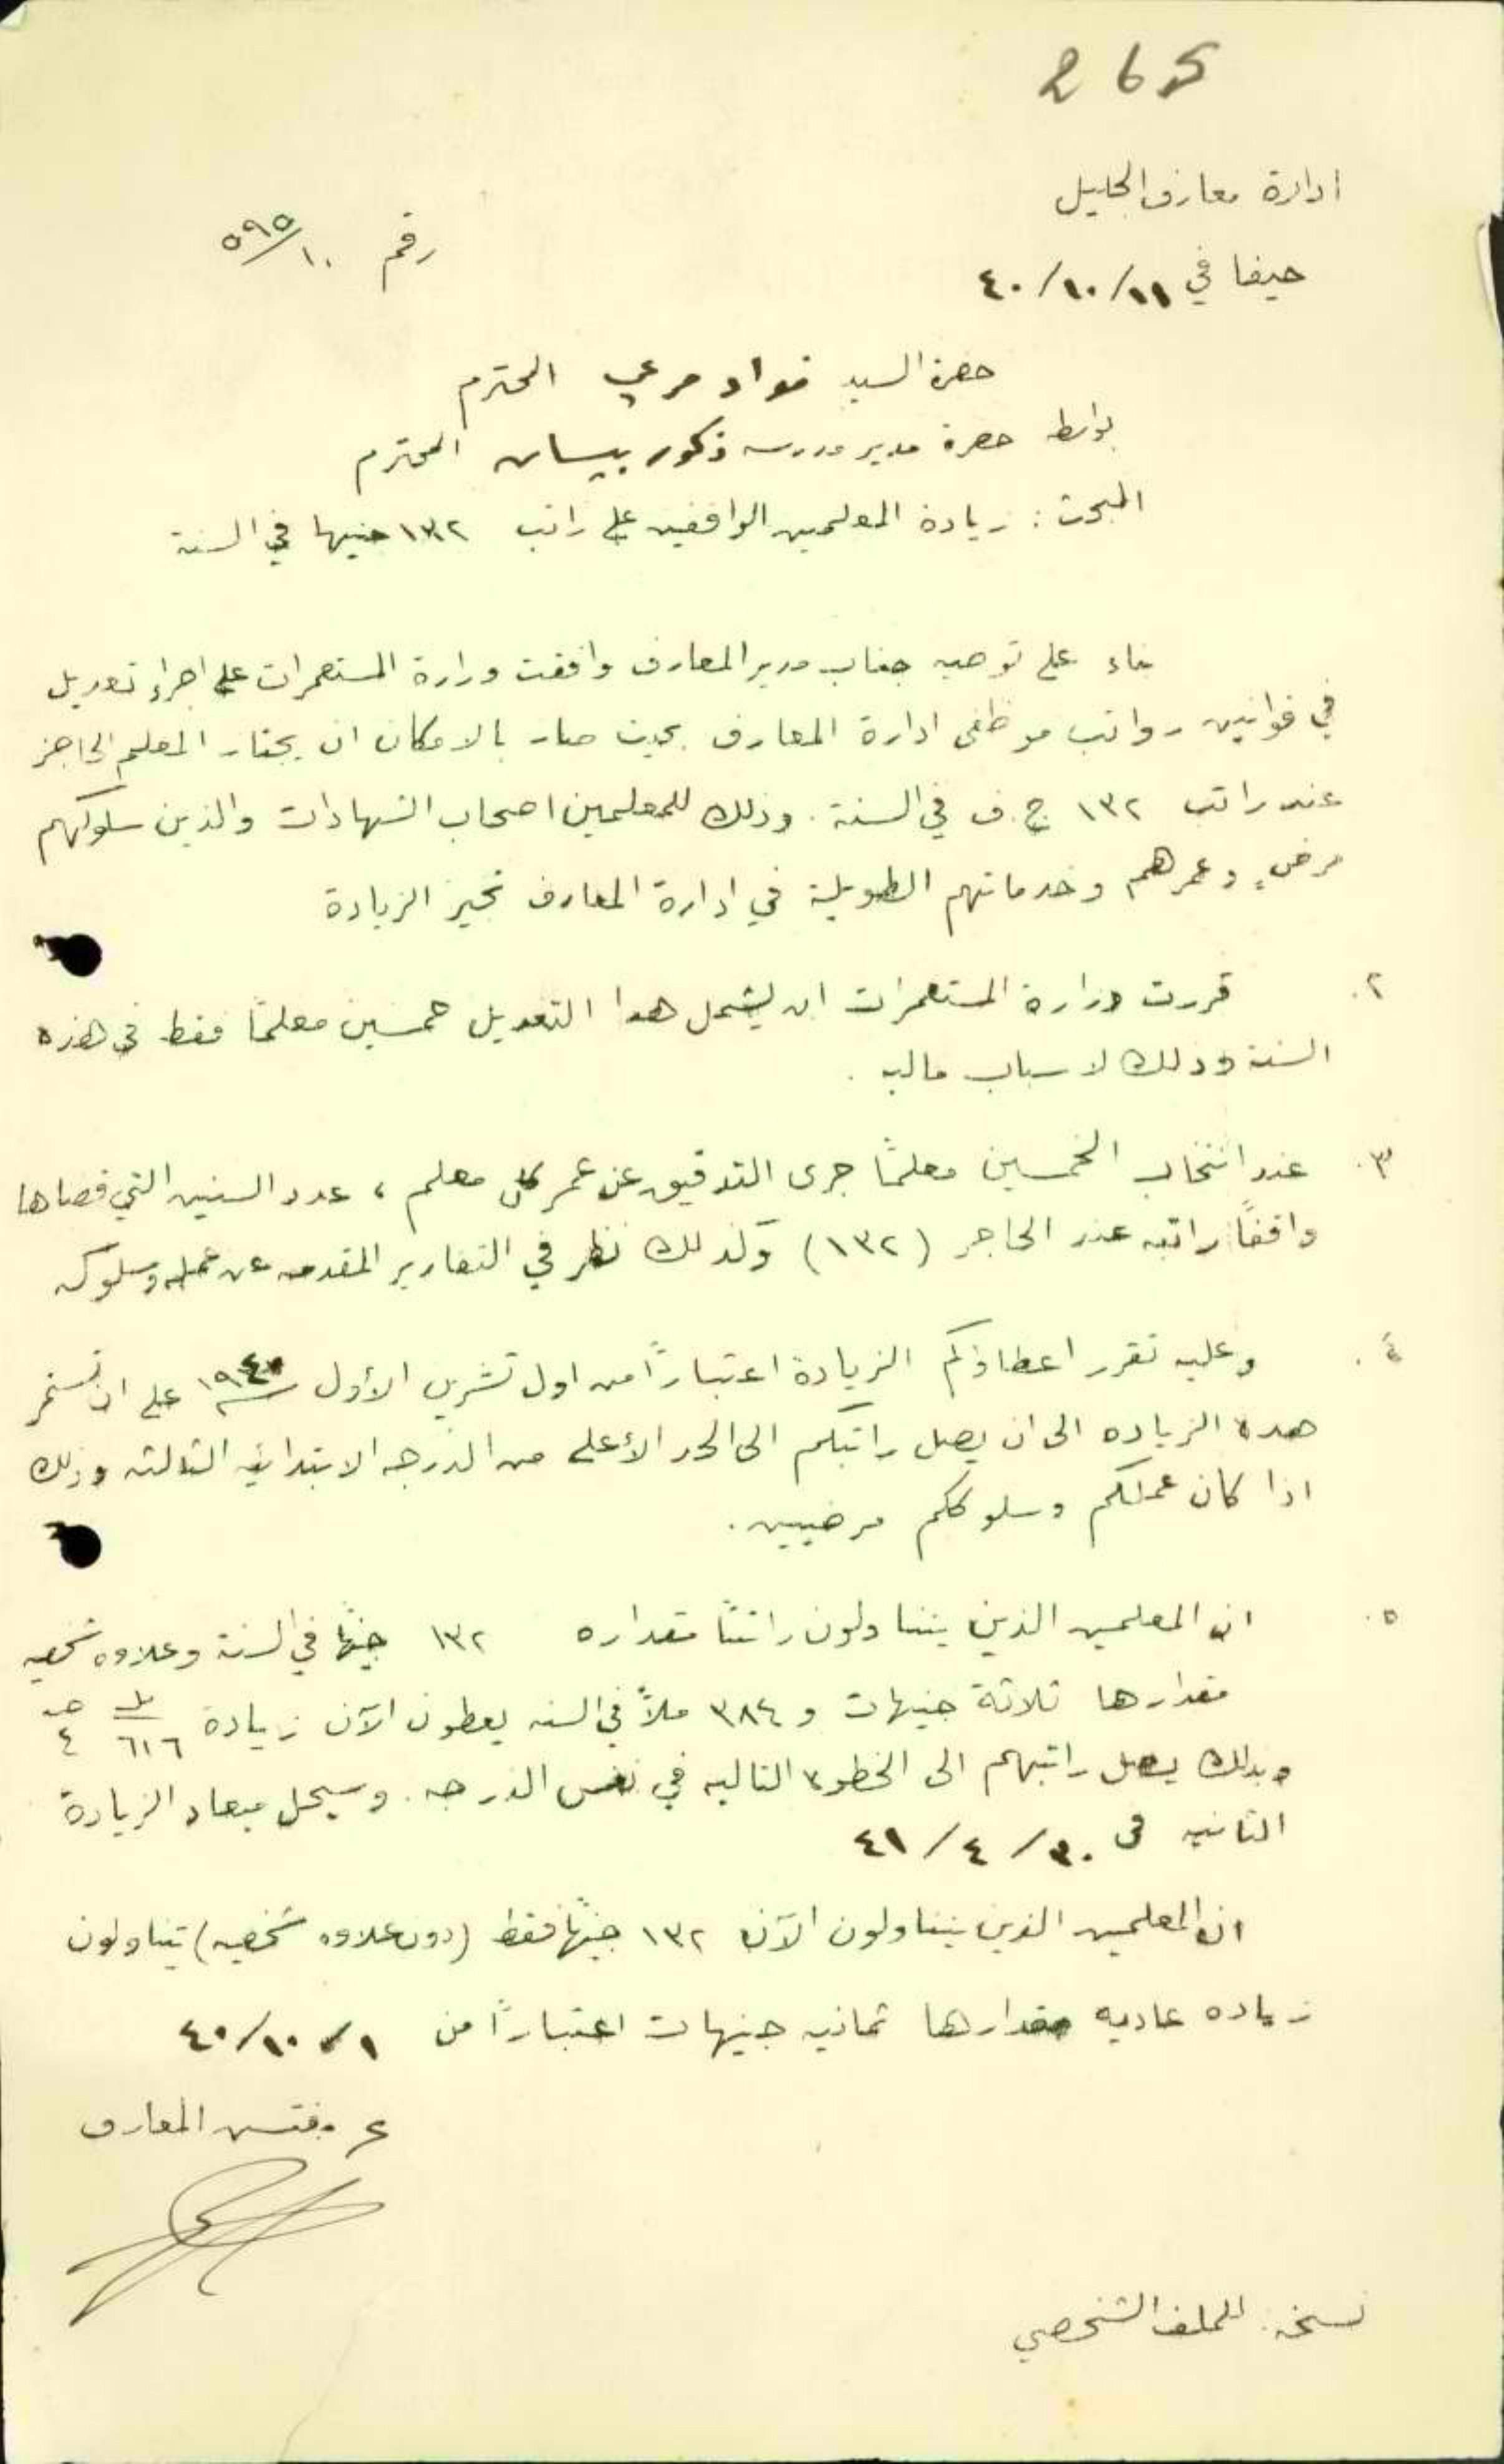 265
ادارة معارف الجليل
رقم ١٠/٥٩٥
حيفا في ١١/١٠/٤٠
حضرة السيد فواد مرعي المحترم
بواسطة حضرة مدير مدرسة ذكور بيسان المحترم
المبحث : زيادة المعلمين الواقفين على راتب ١٣٢ جنيها في السنة
بناء على توصيه جناب مدير المعارف وافقت وزارة المستعمرات على اجراء تعديل
في قوانين رواتب موظفي ادارة المعارف بحيث صار بالامكان ان يجتاز المعلم الحاجز
عند راتب ١٣٢ ج.ف في السنة . وذلك للمعلمين اصحاب الشهادات والذين سلوكهم
مرضٍ وعمرهم وخدماتهم الطويلة في ادارة المعارف تجيز الزيادة
٢. قررت وزارة المستعمرات ان يشمل هدا التعديل خمسين معلمًا فقط في هذه
السنة وذلك لاسباب ماليه .
٣. عند انتخاب الخمسين معلمًا جرى التدقيق عن عمر كل معلم ، عدد السنين التي قضاها
واقفاً راتبه عند الحاجز (١٣٢) وكذلك نظر في التقارير المقدمه عن عمله وسلوكه
٤. وعليه تقرر اعطاؤكم الزيادة اعتباراً من اول تشرين الأول سنة ١٩٤٠ على ان تستمر
هده الزياده الى ان يصل راتبكم الى الحد الأعلى من الدرجه الابتدائيه الثالثه وذلك
اذا كان عملكم وسلوككم مرضيين .
٥. ان المعلمين الذين يتناولون راتبًا مقداره ١٣٢ جنيهًا في السنة وعلاوه شخصيه
مقدارها ثلاثة جنيهات و ٣٨٤ ملاً في السنه يعطون الآن زيادة ٦١٦ مل ٤ جـ
وبذلك يصل راتبهم الى الخطوه التاليه في نفس الدرجه . وسيحل ميعاد الزيادة
الثانيه في ٣٠/٤/٤١
ان المعلمين الذين يتناولون الآن ١٣٢ جنيهًا فقط (دون علاوه شخصيه) يتناولون
زياده عاديه مقدارها ثمانيه جنيهات اعتباراً من ١/١٠/٤٠
ع مفتش المعارف
نسخة : للملف الشخصي